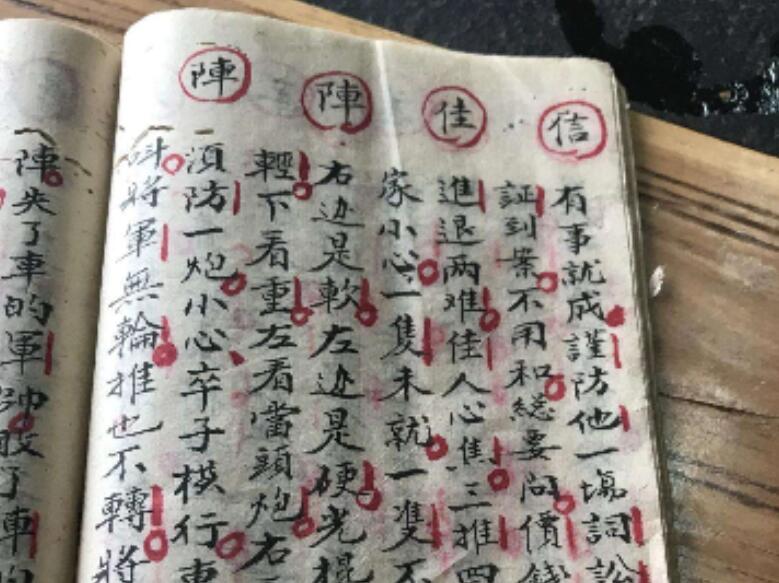 信
佳
陣
陣
有事就成謹防他一塲詞訟
証到案不用和総要问價錢
進退两难佳人心焦三推四
家小心一隻未就一隻不
右边是軟左边是硬光棍
輕下看重左看當頭炮右
須防一炮小心卒子横行車
將軍無輪推也不轉將
陣失了車的軍帥